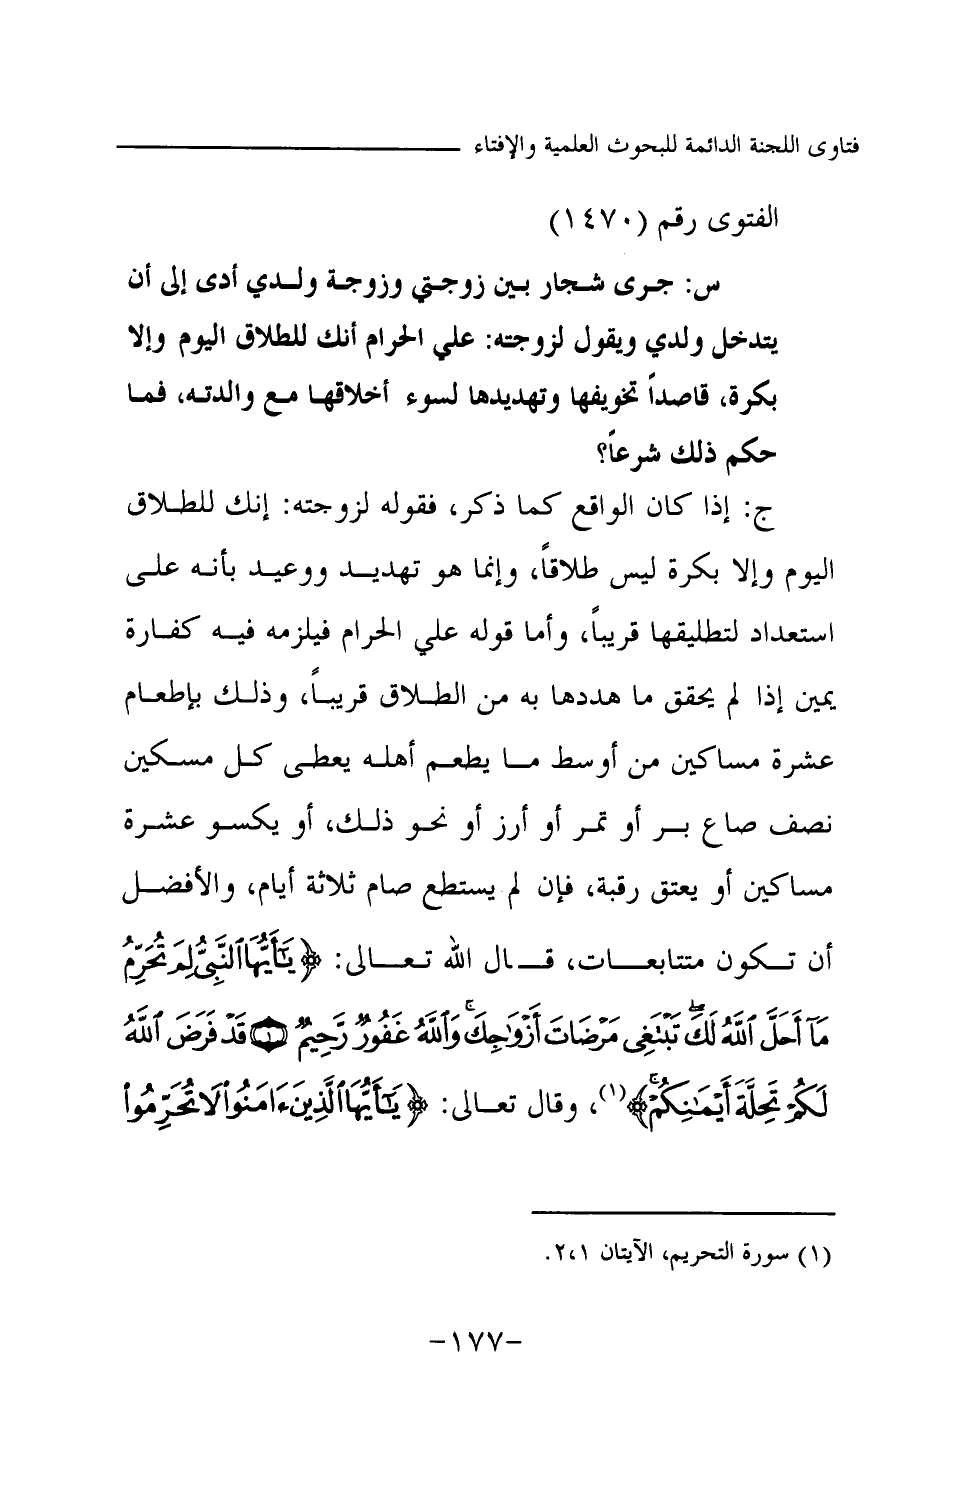 فتاوى اللجنة الدائمة للبحوث العلمية والإفتاء
الفتوى رقم (١٤٧٠)
س: جرى شجار بين زوجتي وزوجة ولدي أدى إلى أن
يتدخل ولدي ويقول لزوجته: علي الحرام أنك للطلاق اليوم وإلا
بكرة، قاصداً تخويفها وتهديدها لسوء أخلاقها مع والدته، فما
حكم ذلك شرعاً؟
ج: إذا كان الواقع كما ذكر، فقوله لزوجته: إنك للطلاق
اليوم وإلا بكرة ليس طلاقاً، وإنما هو تهديد ووعيد بأنه على
استعداد لتطليقها قريباً، وأما قوله علي الحرام فيلزمه فيه كفارة
يمين إذا لم يحقق ما هددها به من الطلاق قريباً، وذلك بإطعام
عشرة مساكين من أوسط ما يطعم أهله يعطى كل مسكين
نصف صاع بر أو تمر أو أرز أو نحو ذلك، أو يكسو عشرة
مساكين أو يعتق رقبة، فإن لم يستطع صام ثلاثة أيام، والأفضل
أن تكون متتابعات، قال الله تعالى: ﴿يَٰٓأَيُّهَا ٱلنَّبِىُّ لِمَ تُحَرِّمُ
مَآ أَحَلَّ ٱللَّهُ لَكَۖ تَبْتَغِى مَرْضَاتَ أَزْوَٰجِكَۚ وَٱللَّهُ غَفُورٌ رَّحِيمٌ ۝١ قَدْ فَرَضَ ٱللَّهُ
لَكُمْ تَحِلَّةَ أَيْمَٰنِكُمْۚ﴾(١)، وقال تعالى: ﴿يَٰٓأَيُّهَا ٱلَّذِينَ ءَامَنُوا۟ لَا تُحَرِّمُوا۟
(١) سورة التحريم، الآيتان ٢،١.
-١٧٧-